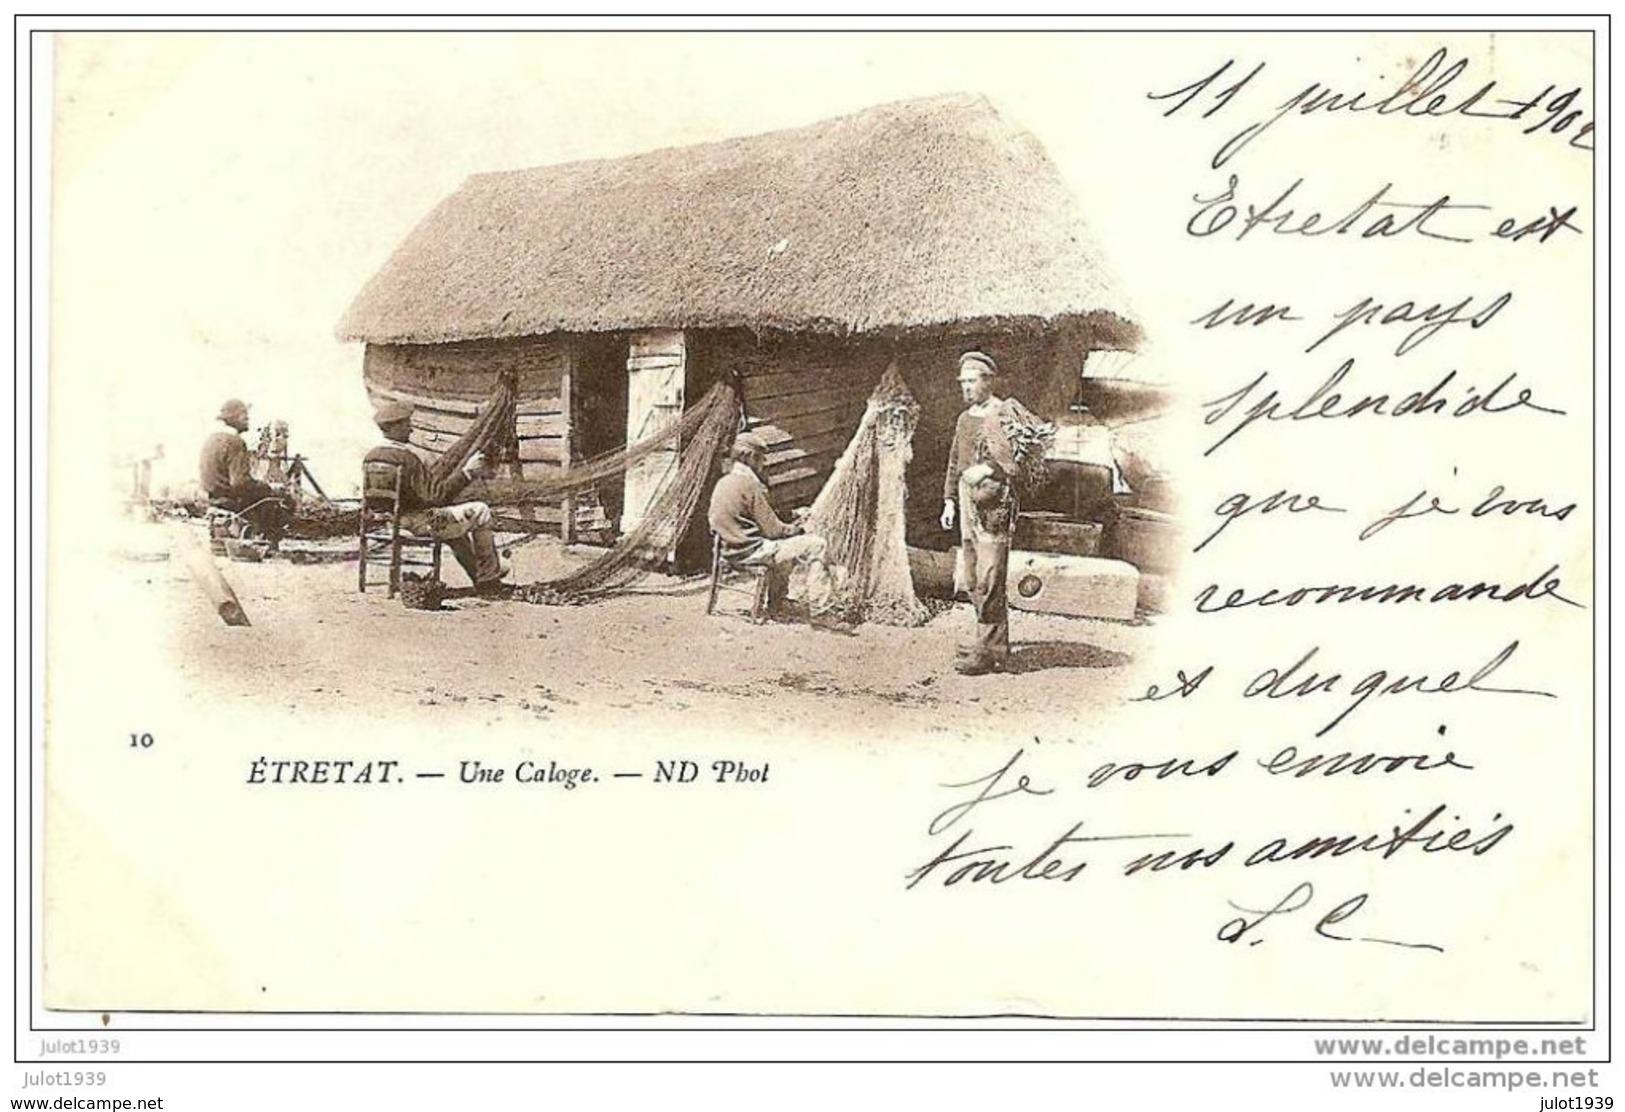 11 juillet 1902
Etretat est
un pays
splendide
que je vous
recommande
et duquel
je vous envoie
toutes nos amitiés
L. C
10
ÉTRETAT. — Une Caloge. — ND Phot
julot1939
www.delcampe.net
julot1939
www.delcampe.net
www.delcampe.net
julot1939